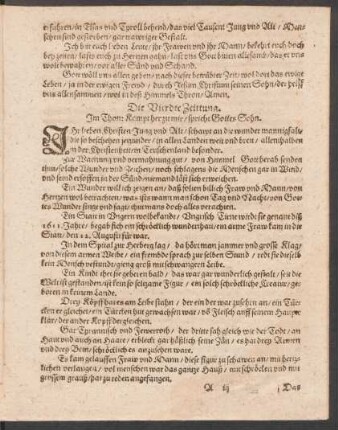 erfahren / in Elsas und Tyroll behend / das viel Tausent Jung und Alt / Men-
schen sind gestorben / gar trawriger Gestalt.
Ich bitt euch lieben Leute / ihr Frawen und ihr Mann / bekehrt euch doch
bey zeiten / lasst euch zu Hertzen gehn / last uns Gott bitten allesamd / das er uns
wolt bewahren / vor aller Sünd und Schand.
Gott wöll uns allen geben / nach dieser betrübter Zeit / wol dort das ewige
Leben / ja in der ewigen Frewd / durch Jesum Christum seinen Sohn / der helff
uns allen sammen / wol in deß Himmels Thron / Amen.
Die Vierdte Zeitung.
Im Thon: Kompt her zu mir / spricht Gottes Sohn.
IHr lieben Christen Jung und Alt / schawt an die wunder mannigfalt /
die so beschehen jetzunder / in allen Landen weit und breit / allenthalben
in der Christenheit / im Teutschenland besonders.
Zur Warnung und vermahnung gut / von Himmel Gott herab senden
thut / solche Wunder und Zeichen / noch schlagens die Menschen gar in Wind /
und seind ersoffen in der Sünd / niemand läst sich erweichen.
Ein Wunder will ich zeigen an / daß sollen billich Fraw und Mann / von
Hertzen wol betrachten / was gschach wann man schon Tag und Nacht / von Gottes
Wunder singt und sagt / thut man doch als verachten.
Ein Statt in Ungern wolbekandt / Ungrisch
Jahrs / begab sich ein schröcklich wunderthat / ein arme Fraw kam in die
Statt / den 22. Augusti für war.
In dem Spital zur Herberg lag / da hört man jammer und grosse Klag /
von diesem armen Weibe / ein frembde sprach zur selben Stund / redt sie deß
kein Mensch verstund / gieng groß mit schwangerm Leibe.
Ein Kindt thet sie geberen bald / das war gar wunderlich gestalt / seit die
Welt ist gestanden / ist kein so seltzame Figur / ein solch schröckliche Creatur / ge-
boren in keinem Lande.
Drey Köpff hat es am Leibe stahn / der ein der war zusehen an / ein Tür-
cken er gleichet / ein Türckischen hut gewachsen war / vo Fleisch auff seinem Haupte
klar / der ander Kopff dergleichen.
Gar Tyrannisch und Fewerroth / der dritte sah gleich wie der Todt / an
Haut und auch an Haare / erbleckt gar häßlich seine Zän / es hat drey Armen
und drey Bein / schröcklich es an zusehen ware.
Es kam gelauffen Fraw und Mann / diese figur zu schawen an / mit hertz-
lichem verlangen / vol menschen war das gantze Hauß / mit schröcken und mit
grossem grauß / hat zu reden angefangen.
A iij Das